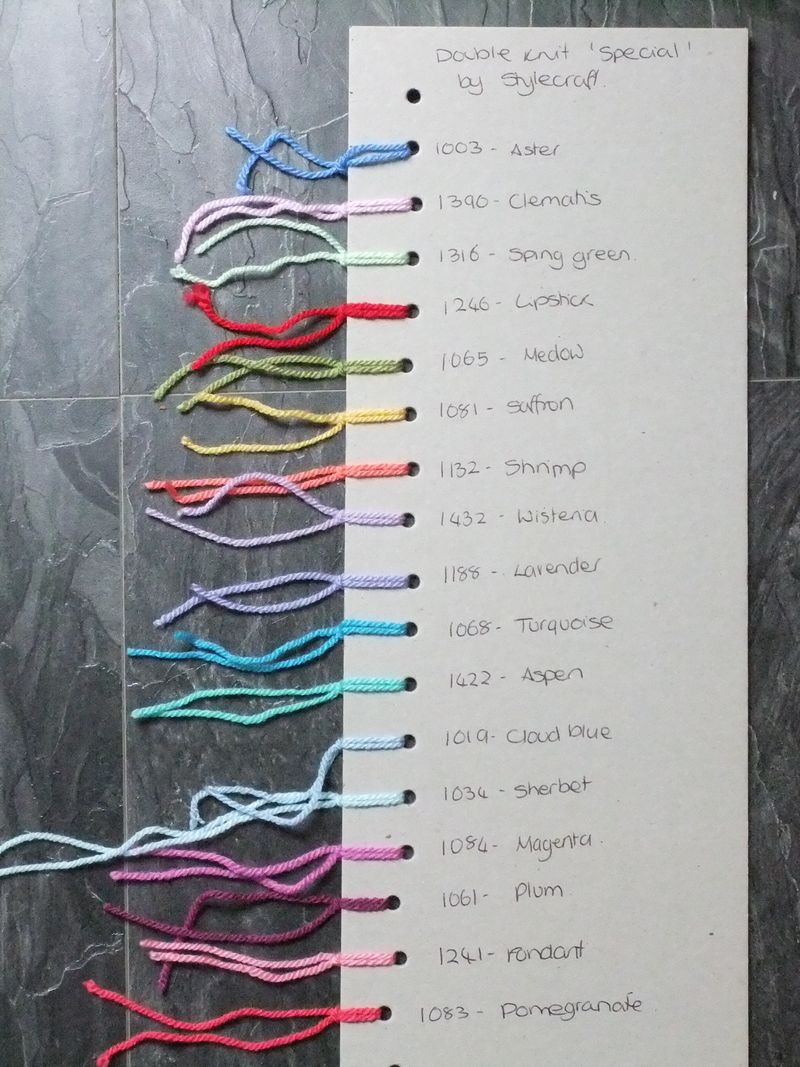 Double Knit 'Special'
by Stylecraft.
1003 - Aster
1390 - Clematis
1316 - Sping green.
1246 - Lipstick
1065 - Medow
1081 - Saffron
1132 - Shrimp
1432 - Wisteria
1188 - Lavender
1068 - Turquoise
1422 - Aspen
1019 - Cloud blue
1034 - Sherbet
1084 - Magenta.
1061 - Plum
1241 - Fondant
1083 - Pomegranate